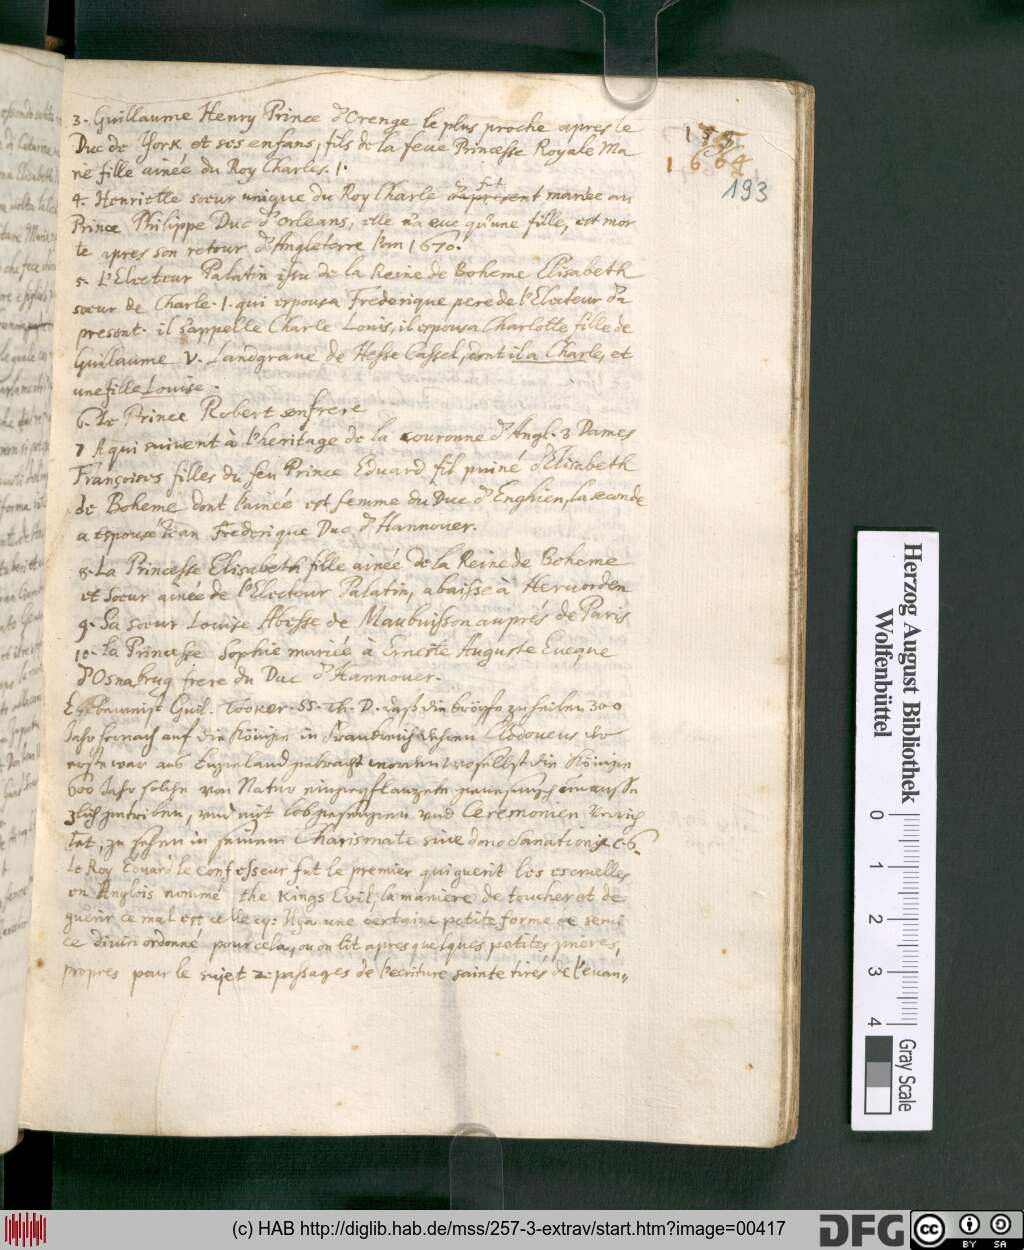 3. Guillaume Henry Prince d'Orenge le plus proche apres le
Duc de York et ses enfans, fils de la feue Princesse Royale Ma
rie fille ainée du Roy Charles. I.
4. Henriette soeur unique du Roy Charle fut mariée au
Prince Philippe Duc d'Orleans, elle n'a eue qu'une fille, est mor
te apres son retour d'Angleterre l'an 1670.
5. L'Electeur Palatin issu de la Reine de Boheme Elisabeth
soeur de Charle. I. qui espousa Frederique pere de l'Electeur d'a
present. il s'appelle Charle Louis, il espousa Charlotte fille de
Guillaume V. Landgrave de Hesse Cassel, dont il a Charle, et
une fille Louise.
6. Le Prince Robert son frere
7 A qui suivent à l'heritage de la couronne d'Angl. 3 Dames
Françoises filles du feu Prince Eduard fil puiné d'Elisabeth
de Boheme dont l'ainée est femme du Duc d'Enghien, la seconde
a espousé Jean Frederique Duc d'Hannover.
8. La Princesse Elisabeth fille ainée de la Reine de Boheme
et Soeur ainée de l'Electeur Palatin, abaisse à Hervorden
9. Sa soeur Louise Abesse de Maubuisson auprés de Paris
10. La Princesse Sophie mariée à Erneste Auguste Eveque
d'Osnabrug frere du Duc d'Hannover.
Guil. Tooker. SS. Th. D. daß die Kröpffe zu heilen 300
Jahr hernach auf die Könige in Franckreich dessen Clodoveus der
erste war aus Engeland gebracht worden woselbst die Könige
600 Jahr solche von Natur eingepflanzete
und mit lobgesängen und Ceremonien
tet, zu sehen in seinem Charismate sive dono Sanationis c. 6.
Le Roy Eduard le Confesseur fut le premier qui guerit les escruelles
en Anglois nommé the Kings Evil, la maniere de toucher et de
guérir ce mal est celle cy: Il y a une certaine petite forme de servi
ce divin ordonné pour cela, ou on lit apres quelques petites prieres,
propres pour le sujet 2. passages de l'ecriture sainte tirés de l'evan„
1664
193
Herzog August Bibliothek
Wolfenbüttel
0 1 2 3 4
Gray Scale
(c) HAB http://diglib.hab.de/mss/257-3-extrav/start.htm?image=00417
DFG
cc BY SA